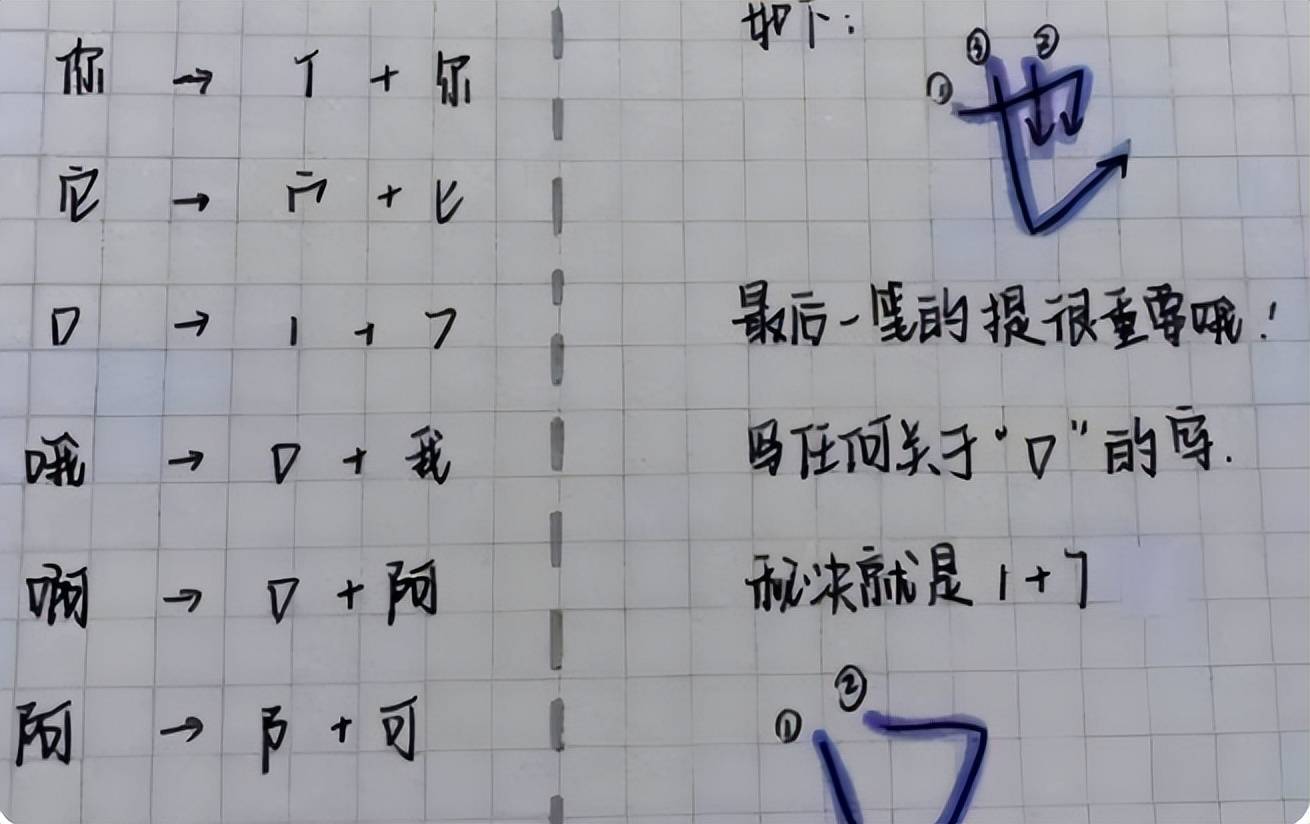 你 → 亻 + 尔
它 → 宀 + 匕
口 → 1 + 7
哦 → 口 + 我
啊 → 口 + 阿
阿 → 阝 + 可
如下:
① ③ ② 也
最后一笔的提很重要哦!
写任何关于“口”的字.
秘决就是 1+7
① ② 口